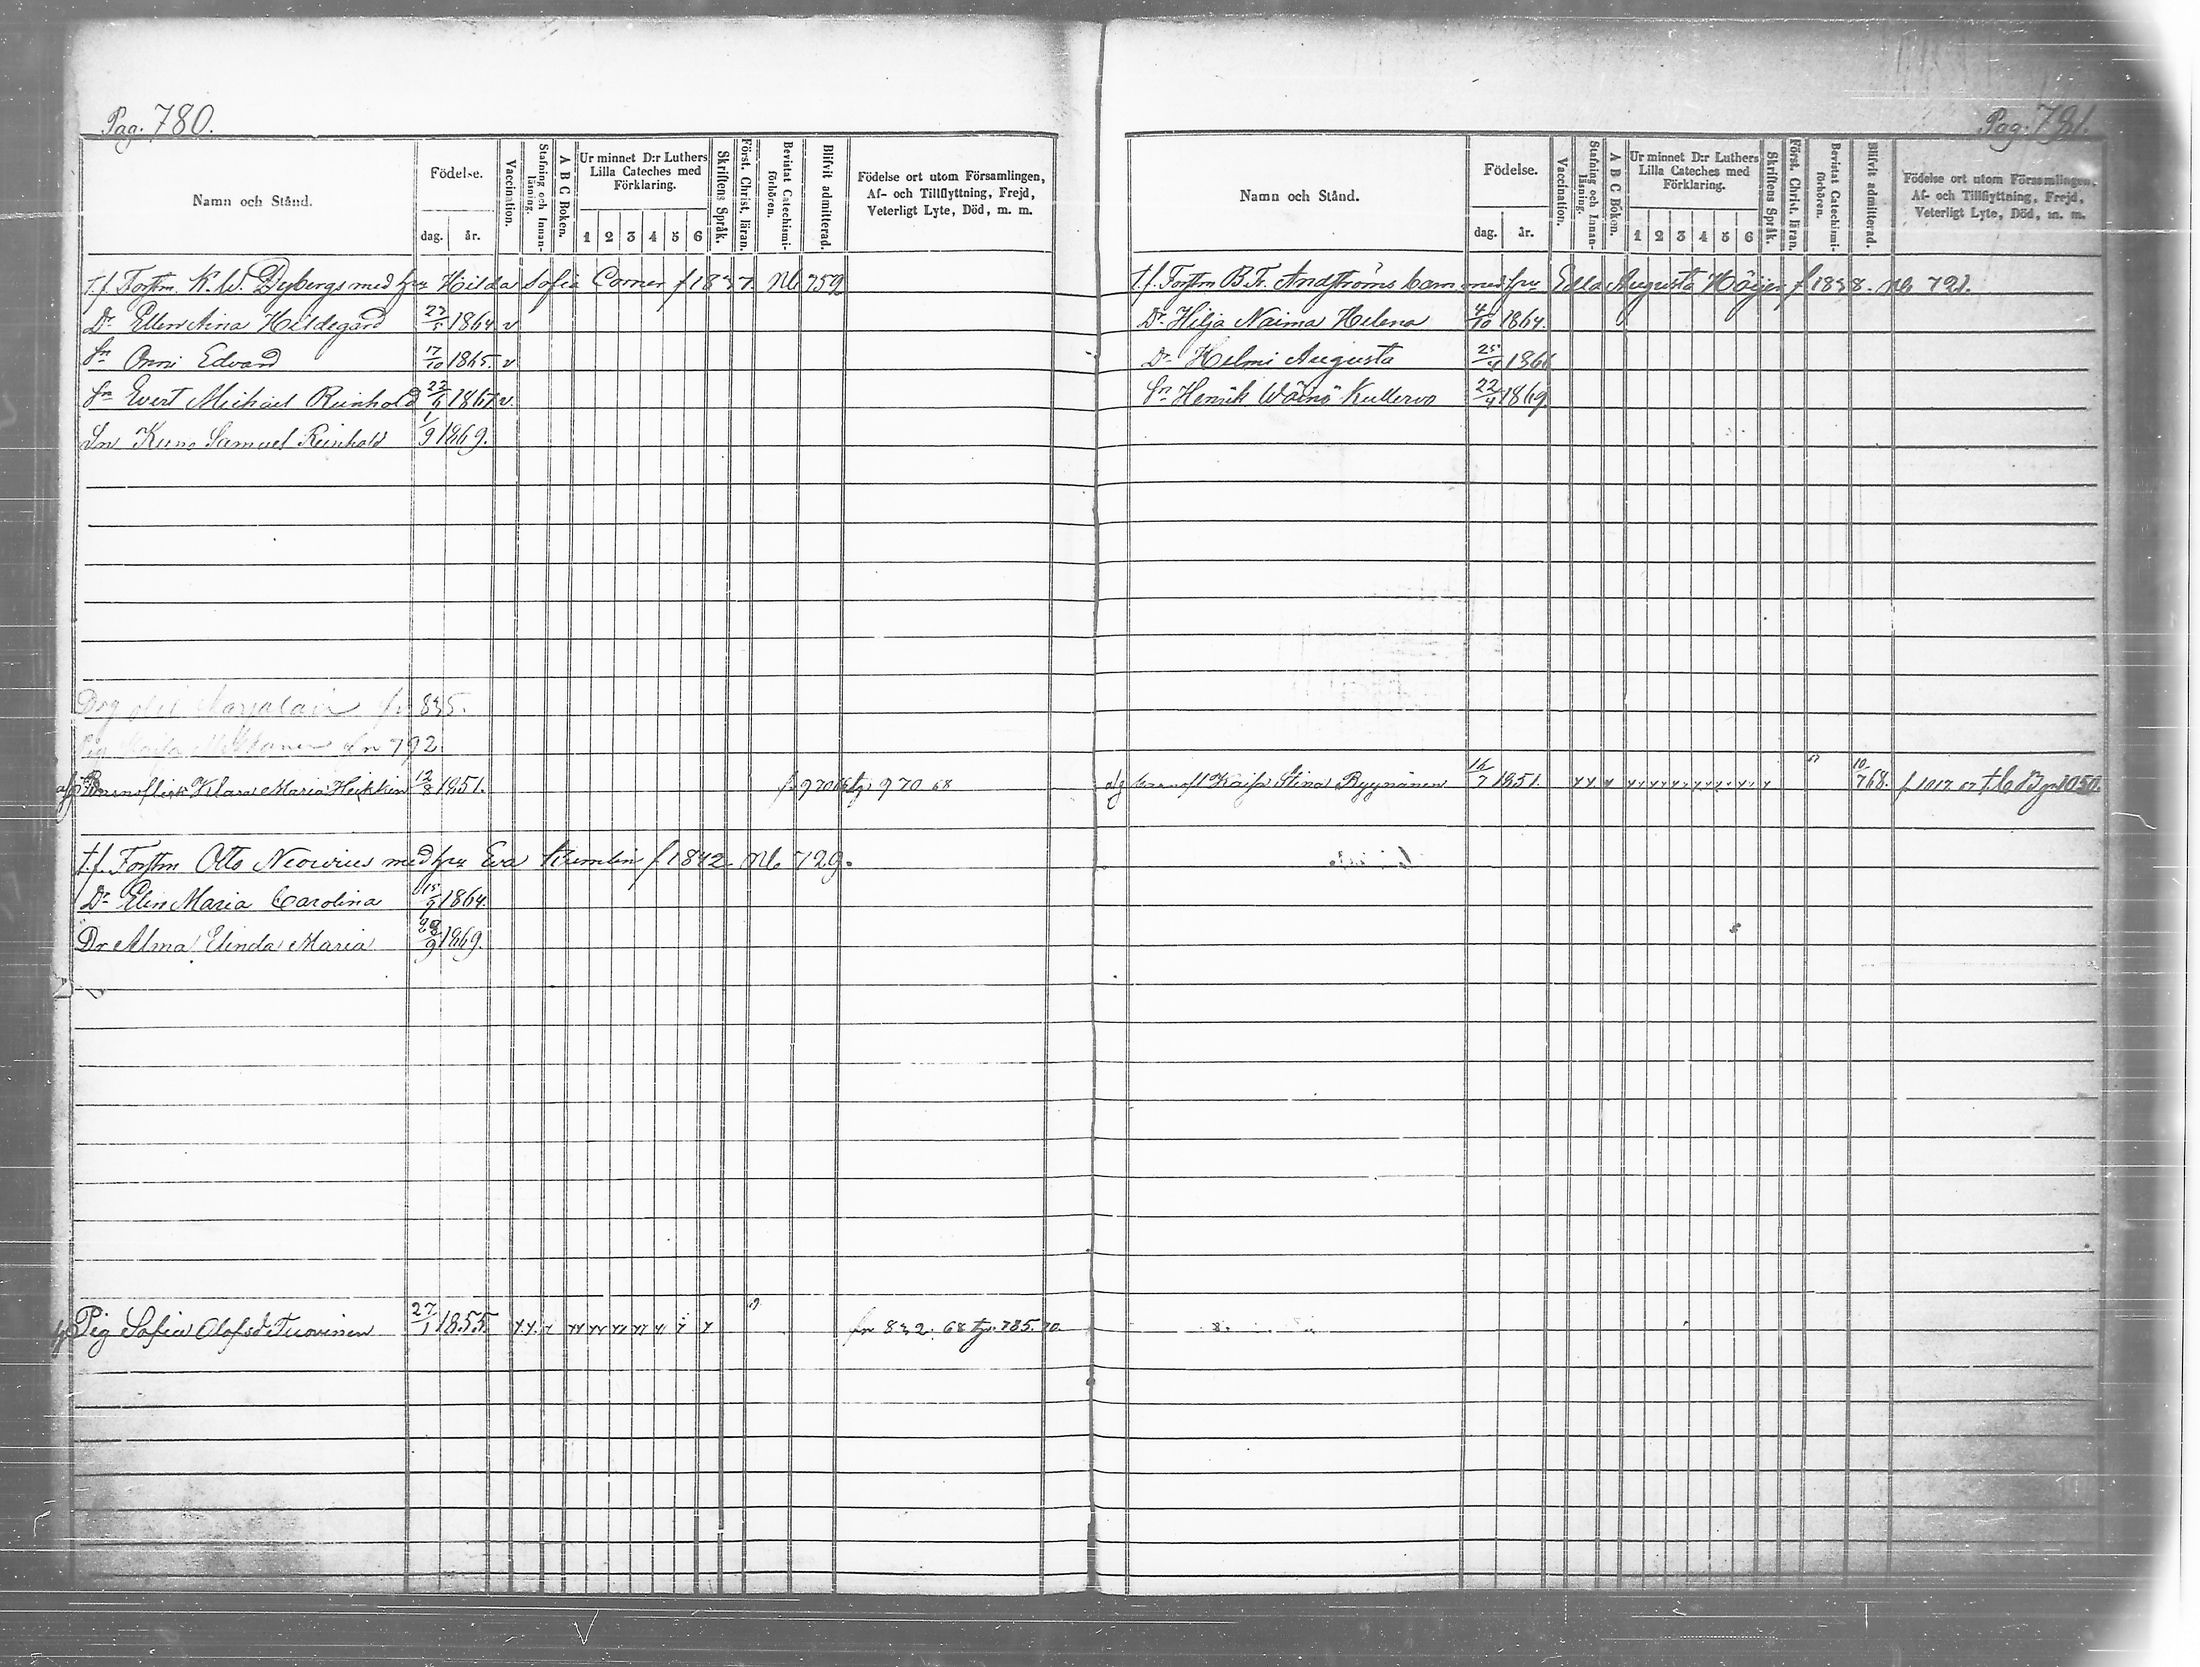 Pag. 780.
Namn och Stånd.
Födelse.
dag. år.
Vaccination.
Stafning och Innanläsning.
A B C Boken.
Ur minnet D:r Luthers Lilla Cateches med Förklaring.
1 2 3 4 5 6
Skriftens Språk.
Först. Christ. läran.
Bevistat Catechismi-förhören.
Blifvit admitterad.
Födelse ort utom Församlingen, Af- och Tillflyttning, Frejd, Veterligt Lyte, Död, m. m.
t.f. Forstm. K. W. Dybergs med fru Hilda Sofia f 1837.
Dr Ellen Aina Hildegard 1864. v
Sn Onni Edvard 17/10 1865. v
Sn Evert Michael Reinhold 1867 v
Sn Kuno Samuel Reinhold 1/9 1869.
835.
792
Klara Maria Heikkin 12/8 1851. 970 68
t.f. Forstm Otto Neovius med fru Eva f 1842 729.
Dr Elin Maria Carolina 1864.
Dr Alma Elinda Maria 1869.
Pig Sofia Olofsd Tuovinen 27/1 1855. fr 832. 68 785. 70.
Pag. 781.
Namn och Stånd.
Födelse.
dag. år.
Vaccination.
Stafning och Innanläsning.
A B C Boken.
Ur minnet D:r Luthers Lilla Cateches med Förklaring.
1 2 3 4 5 6
Skriftens Språk.
Först. Christ. läran.
Bevistat Catechismi-förhören.
Blifvit admitterad.
Födelse ort utom Församlingen, Af- och Tillflyttning, Frejd, Veterligt Lyte, Död, m. m.
t.f. Forstm B. Fr. Andströms barn med fru Edla Augusta Höijer f 1838.
Dr Hilja Naima Helena 4/10 1864.
Dr Helmi Augusta 25/4 186
Sn Henrik Wäinö Kullervo 22/4 1869.
Kaisa Stina Ryynänen 16/7 1851. 10/7 68.